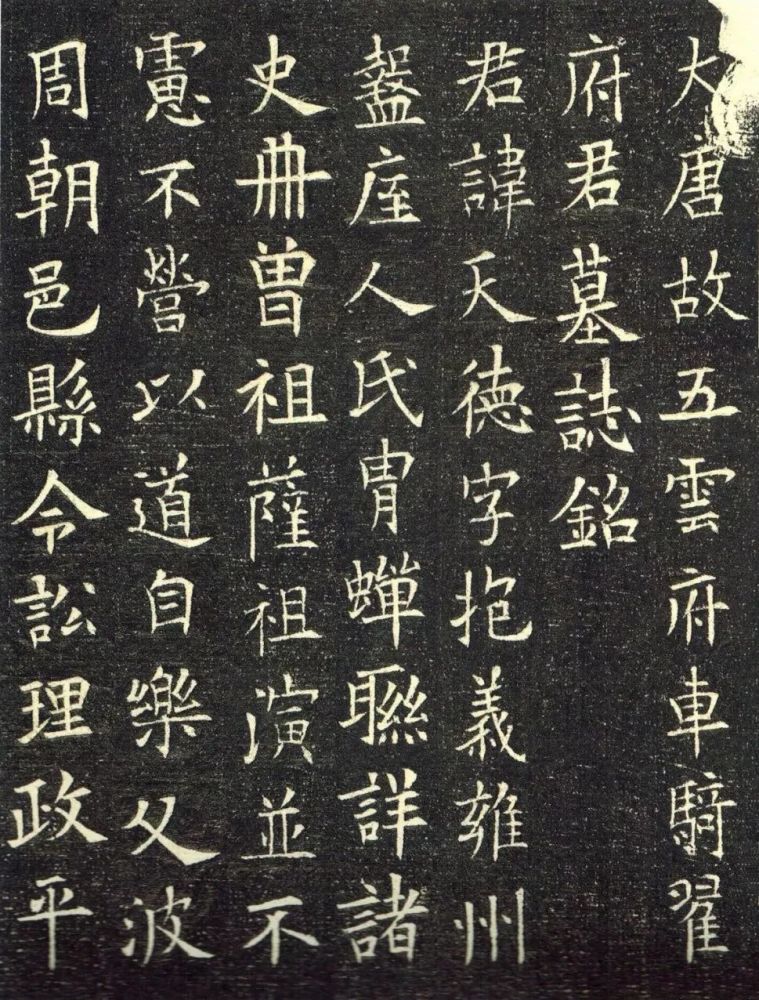 大唐故五雲府車騎翟
府君墓誌銘
君諱天德字抱義雍州
盩庢人氏胄蟬聯詳諸
史冊曾祖薩祖演並不
憲不營以道自樂父波
周朝邑縣令訟理政平